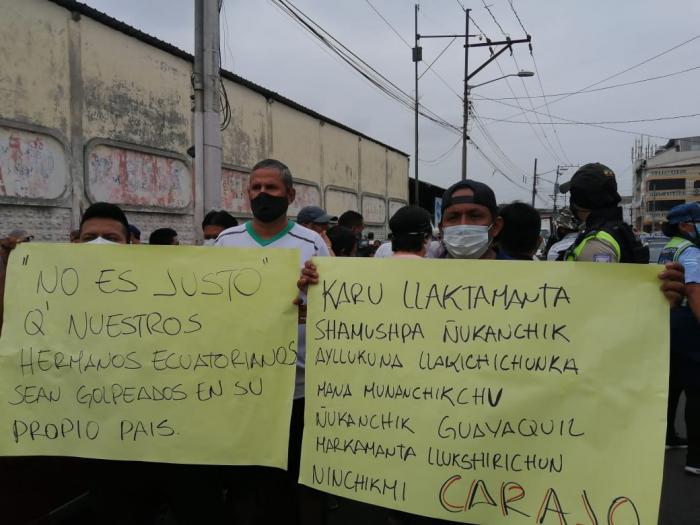 "NO ES JUSTO"
Q' NUESTROS
HERMANOS ECUATORIANOS
SEAN GOLPEADOS EN SU
PROPIO PAIS.
KARU LLAKTAMANTA
SHAMUSHPA ÑUKANCHIK
AYLLUKUNA LLAKICHICHUNKA
MANA MUNANCHIKCHU
ÑUKANCHIK GUAYAQUIL
MARKAMANTA LLUKSHIRICHUN
NINCHIKMI CARAJO